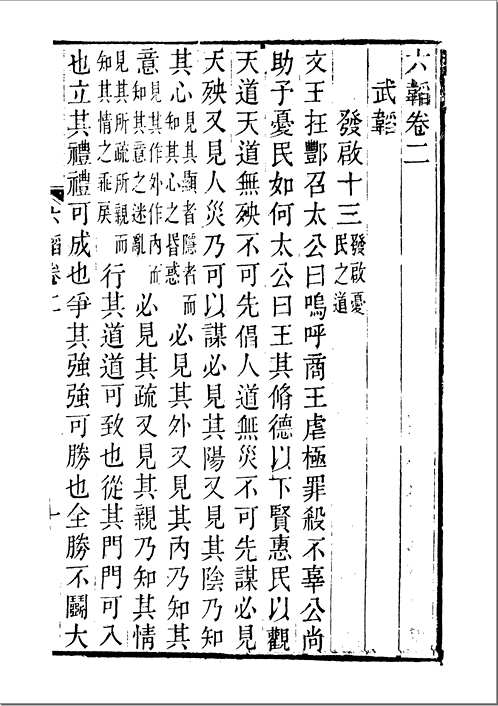 六韜卷二
武韜
發啟十三發啟憂民之道
文王在酆召太公曰嗚呼商王虐極罪殺不辜公尚
助予憂民如何太公曰王其脩德以下賢惠民以觀
天道天道無殃不可先倡人道無災不可先謀必見
天殃又見人災乃可以謀必見其陽又見其陰乃知
其心見其顯者隱者而知其心之昬惑必見其外又見其內乃知其
意見其作外作內而知其意之迷亂必見其疏又見其親乃知其情
見其所疏所親而知其情之乖戾行其道道可致也從其門門可入
也立其禮禮可成也爭其強強可勝也全勝不鬭大
六韜卷二
十